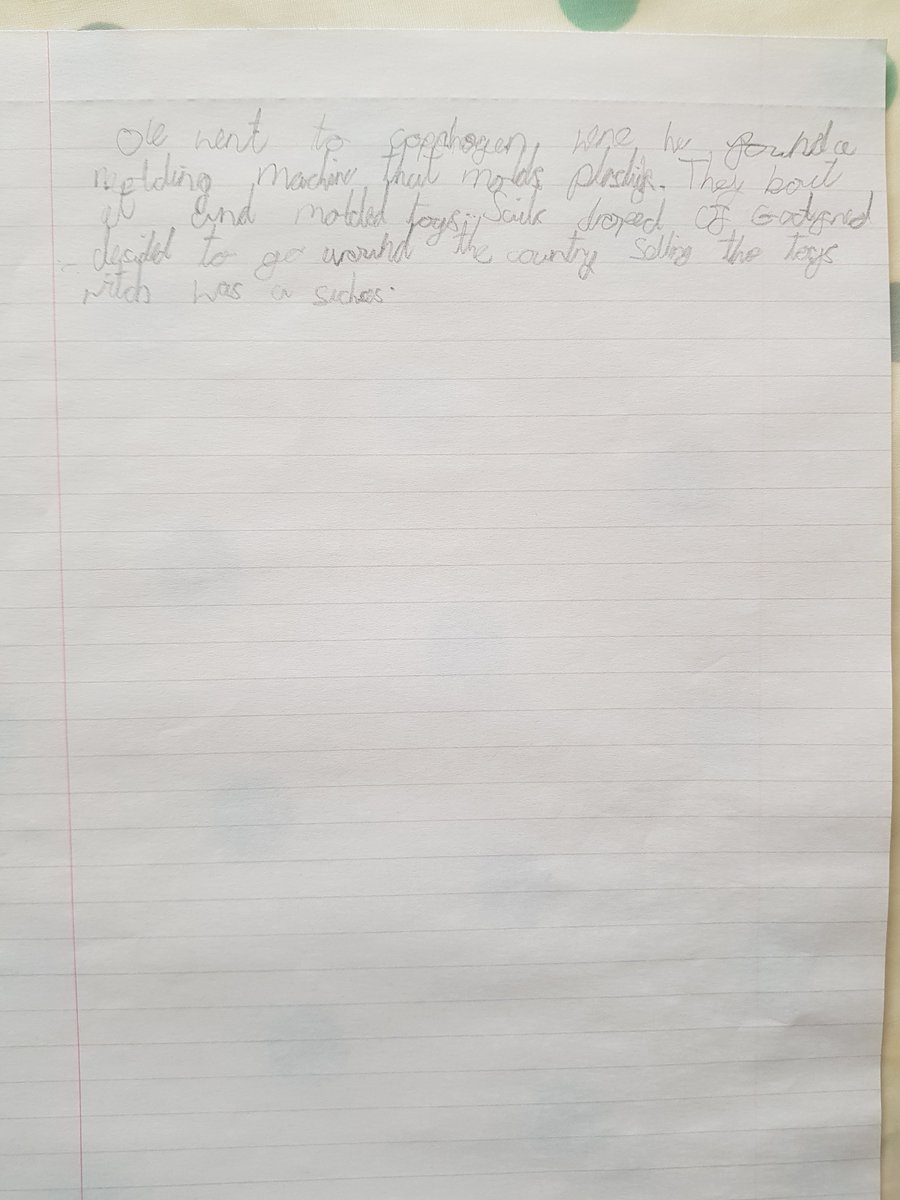 Ole went to copnhagen, were he found a
molding machine that molds plastik. They bout
it and molded toys. Sails droped of Godtgned
desided to go wround the country selling the toys
witch was a sucses.